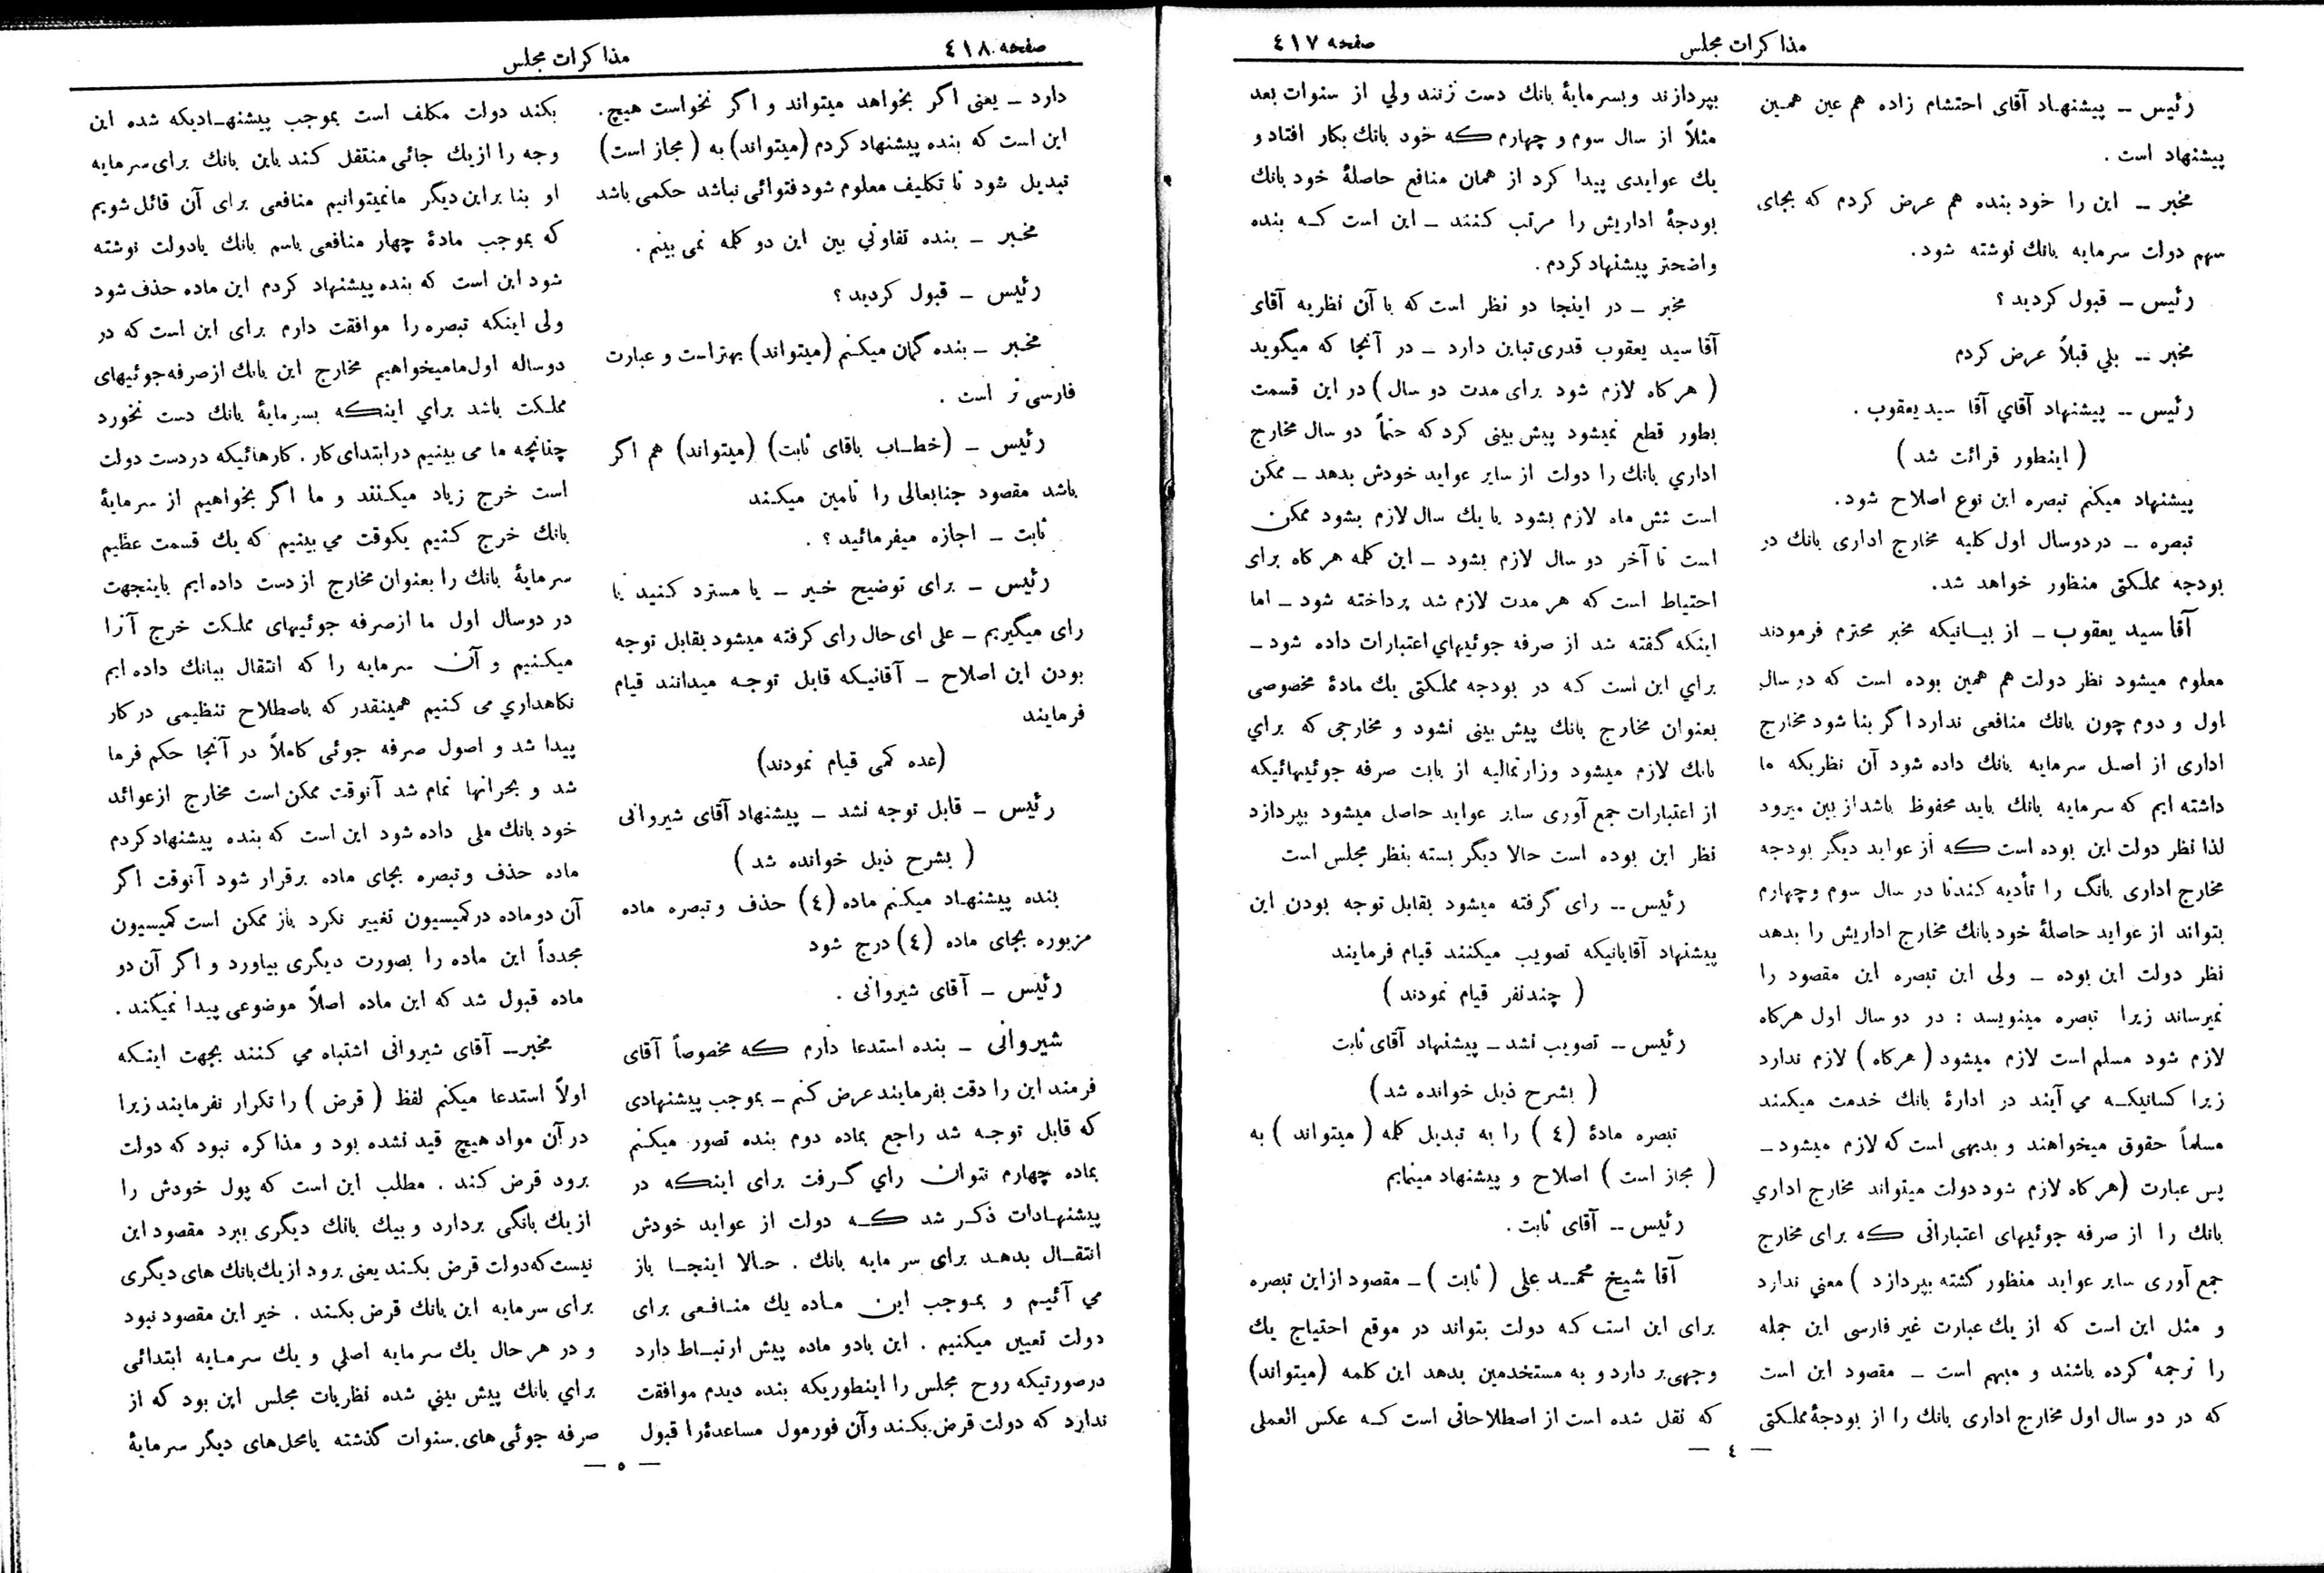 مذاکرات مجلس
صفحه ٤١٧
رئیس ــ پیشنهاد آقای احتشام زاده هم عین همین
پیشنهاد است .
مخبر ــ این را خود بنده هم عرض کردم که بجای
سهم دولت سرمایه بانك نوشته شود.
رئیس ــ قبول کردید ؟
مخبر ــ بلی قبلاً عرض کردم
رئیس ــ پیشنهاد آقای آقا سید یعقوب .
( اینطور قرائت شد )
پیشنهاد میکنم تبصره این نوع اصلاح شود.
تبصره ــ در دو سال اول کلیه مخارج اداری بانك در
بودجه مملکتی منظور خواهد شد.
آقا سید یعقوب ــ از بیانیکه مخبر محترم فرمودند
معلوم میشود نظر دولت هم همین بوده است که در سال
اول و دوم چون بانك منافعی ندارد اگر بنا شود مخارج
اداری از اصل سرمایه بانك داده شود آن نظریکه ما
داشته ایم که سرمایه بانك باید محفوظ باشد از بین میرود
لذا نظر دولت این بوده است که از عواید دیگر بودجه
مخارج اداری بانگ را تأدیه کند تا در سال سوم و چهارم
بتواند از عواید حاصلهٔ خود بانك مخارج اداریش را بدهد
نظر دولت این بوده ــ ولی این تبصره این مقصود را
نمیرساند زیرا تبصره مینویسد : در دو سال اول هرگاه
لازم شود مسلم است لازم میشود ( هرگاه ) لازم ندارد
زیرا کسانیکه می آیند در ادارهٔ بانك خدمت میکنند
مسلماً حقوق میخواهند و بدیهی است که لازم میشود ــ
پس عبارت (هرگاه لازم شود دولت میتواند مخارج اداری
بانك را از صرفه جوئیهای اعتباراتی که برای مخارج
جمع آوری سایر عواید منظور گشته بپردازد ) معنی ندارد
و مثل این است که از یك عبارت غیر فارسی این جمله
را ترجمه کرده باشند و مبهم است ــ مقصود این است
که در دو سال اول مخارج اداری بانك را از بودجهٔ مملکتی
بپردازند و بسرمایهٔ بانك دست نزنند ولی از سنوات بعد
مثلاً از سال سوم و چهارم که خود بانك بکار افتاد و
یك عوایدی پیدا کرد از همان منافع حاصلهٔ خود بانك
بودجهٔ اداریش را مرتب کنند ــ این است که بنده
واضحتر پیشنهاد کردم.
مخبر ــ در اینجا دو نظر است که با آن نظریه آقای
آقا سید یعقوب قدری تباین دارد ــ در آنجا که میگوید
( هرگاه لازم شود برای مدت دو سال ) در این قسمت
بطور قطع نمیشود پیش بینی کرد که حتماً دو سال مخارج
اداری بانك را دولت از سایر عواید خودش بدهد ــ ممکن
است شش ماه لازم بشود یا یك سال لازم بشود ممکن
است تا آخر دو سال لازم بشود ــ این کلمه هرگاه برای
احتیاط است که هر مدت لازم شد پرداخته شود ــ اما
اینکه گفته شد از صرفه جوئیهای اعتبارات داده شود ــ
برای این است که در بودجه مملکتی یك مادهٔ مخصوصی
بعنوان مخارج بانك پیش بینی نشود و مخارجی که برای
بانك لازم میشود وزارتمالیه از بابت صرفه جوئیهائیکه
از اعتبارات جمع آوری سایر عواید حاصل میشود بپردازد
نظر این بوده است حالا دیگر بسته بنظر مجلس است
رئیس ــ رای گرفته میشود بقابل توجه بودن این
پیشنهاد آقایانیکه تصویب میکنند قیام فرمایند
( چند نفر قیام نمودند )
رئیس ــ تصویب نشد ــ پیشنهاد آقای ثابت
( بشرح ذیل خوانده شد )
تبصره مادهٔ (٤) را به تبدیل کلمه ( میتواند ) به
( مجاز است ) اصلاح و پیشنهاد مینمایم
رئیس ــ آقای ثابت .
آقا شیخ محمد علی ( ثابت ) ــ مقصود از این تبصره
برای این است که دولت بتواند در موقع احتیاج یك
وجهی بر دارد و به مستخدمین بدهد این کلمه (میتواند)
که نقل شده است از اصطلاحاتی است که عکس العملی
— ٤ —
صفحه ٤١٨
مذاکرات مجلس
دارد ــ یعنی اگر بخواهد میتواند و اگر نخواست هیچ.
این است که بنده پیشنهاد کردم (میتواند) به ( مجاز است)
تبدیل شود تا تکلیف معلوم شود فتوائی نباشد حکمی باشد
مخبر ــ بنده تفاوتی بین این دو کلمه نمی بینم .
رئیس ــ قبول کردید ؟
مخبر ــ بنده گمان میکنم (میتواند) بهتر است و عبارت
فارسی تر است .
رئیس ــ (خطاب باقای ثابت) (میتواند) هم اگر
باشد مقصود جنابعالی را تامین میکند
ثابت ــ اجازه میفرمائید ؟ .
رئیس ــ برای توضیح خیر ــ یا مسترد کنید یا
رای میگیریم ــ علی ای حال رای گرفته میشود بقابل توجه
بودن این اصلاح ــ آقانیکه قابل توجه میدانند قیام
فرمایند
(عده کمی قیام نمودند)
رئیس ــ قابل توجه نشد ــ پیشنهاد آقای شیروانی
( بشرح ذیل خوانده شد )
بنده پیشنهاد میکنم ماده (٤) حذف و تبصره ماده
مزبوره بجای ماده (٤) درج شود
رئیس ــ آقای شیروانی .
شیروانی ــ بنده استدعا دارم که مخصوصاً آقای
فرمند این را دقت بفرمایند عرض کنم ــ بموجب پیشنهادی
که قابل توجه شد راجع بماده دوم بنده تصور میکنم
بماده چهارم نتوان رای گرفت برای اینکه در
پیشنهادات ذکر شد که دولت از عواید خودش
انتقال بدهد برای سرمایه بانك . حالا اینجا باز
می آئیم و بموجب این ماده یك منافعی برای
دولت تعیین میکنیم . این بادو ماده پیش ارتباط دارد
درصورتیکه روح مجلس را اینطوریکه بنده دیدم موافقت
ندارد که دولت قرض بکند و آن فورمول مساعدهٔ را قبول
بکند دولت مکلف است بموجب پیشنهادیکه شده این
وجه را از یك جائی منتقل کند باین بانك برای سرمایه
او بنا براین دیگر مانمیتوانیم منافعی برای آن قائل شویم
که بموجب مادهٔ چهار منافعی باسم بانك یادولت نوشته
شود این است که بنده پیشنهاد کردم این ماده حذف شود
ولی اینکه تبصره را موافقت دارم برای این است که در
دو ساله اول مامیخواهیم مخارج این بانك از صرفه جوئیهای
مملکت باشد برای اینکه بسرمایهٔ بانك دست نخورد
چنانچه ما می بینیم در ابتدای کار . کارهائیکه در دست دولت
است خرج زیاد میکنند و ما اگر بخواهیم از سرمایهٔ
بانك خرج کنیم یکوقت می بینیم که یك قسمت عظیم
سرمایهٔ بانك را بعنوان مخارج از دست داده ایم باینجهت
در دوسال اول ما ازصرفه جوئیهای مملکت خرج آنرا
میکنیم و آن سرمایه را که انتقال ببانك داده ایم
نگاهداری می کنیم همینقدر که باصطلاح تنظیمی در کار
پیدا شد و اصول صرفه جوئی کاملاً در آنجا حکم فرما
شد و بحرانها تمام شد آنوقت ممکن است مخارج ازعوائد
خود بانك ملی داده شود این است که بنده پیشنهاد کردم
ماده حذف و تبصره بجای ماده برقرار شود آنوقت اگر
آن دو ماده در کمیسیون تغییر نکرد باز ممکن است کمیسیون
مجدداً این ماده را بصورت دیگری بیاورد و اگر آن دو
ماده قبول شد که این ماده اصلاً موضوعی پیدا نمیکند .
مخبر ــ آقای شیروانی اشتباه می کنند بجهت اینکه
اولاً استدعا میکنم لفظ ( قرض ) را تکرار نفرمایند زیرا
در آن مواد هیچ قید نشده بود و مذاکره نبود که دولت
برود قرض کند . مطلب این است که پول خودش را
از یك بانگی بردارد و بیك بانك دیگری ببرد مقصود این
نیست که دولت قرض بکند یعنی برود از یك بانك های دیگری
برای سرمایه این بانك قرض بکند . خیر این مقصود نبود
و در هر حال یك سرمایه اصلی و یك سرمایه ابتدائی
برای بانك پیش بینی شده نظریات مجلس این بود که از
صرفه جوئی های سنوات گذشته یامحل های دیگر سرمایهٔ
— ٥ —